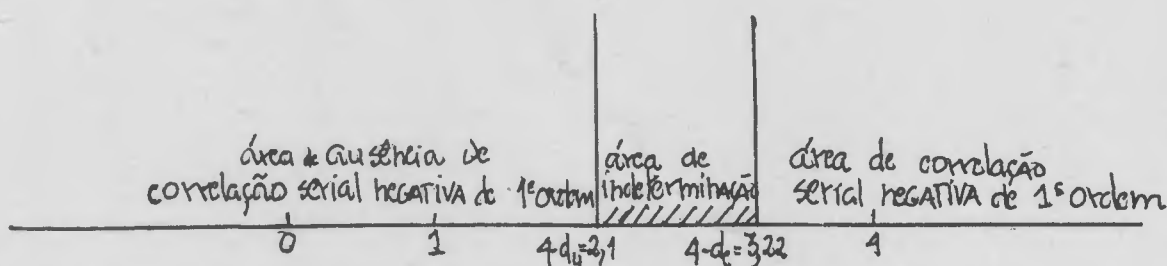 área de ausência de
correlação serial negativa de 1ª ordem
área de
indeterminação
área de correlação
serial negativa de 1ª ordem
0
1
4-du=2,1
4-de=3,22
4